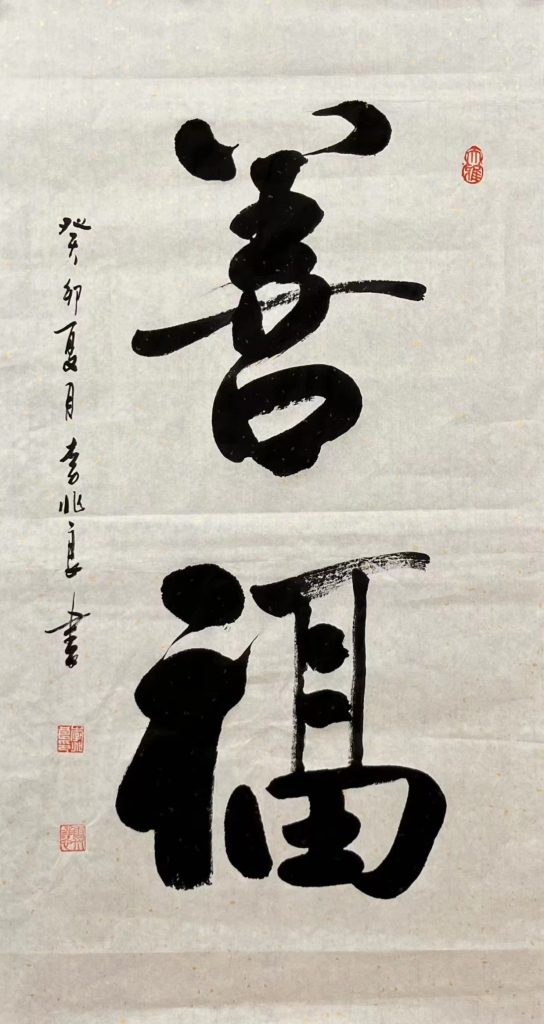 善福
癸卯夏月李兆良书